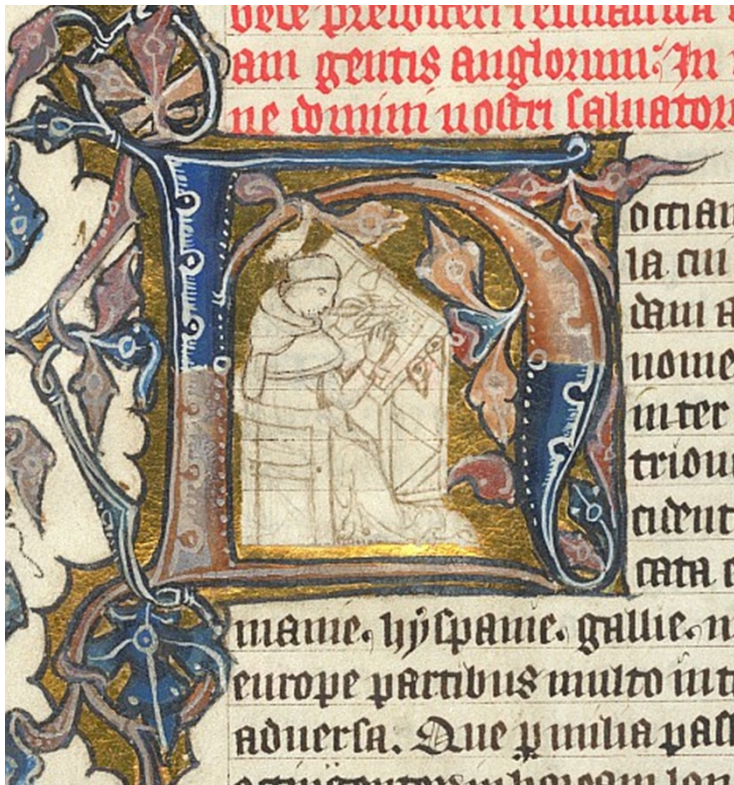 am gentis anglorum. In
ne domini nostri saluator
occian
la cui
dam a
nome
inter
trion
cident
cata e
manie. hyspanie. gallie. m
europe partibus multo int
aduersa. Que p milia pass